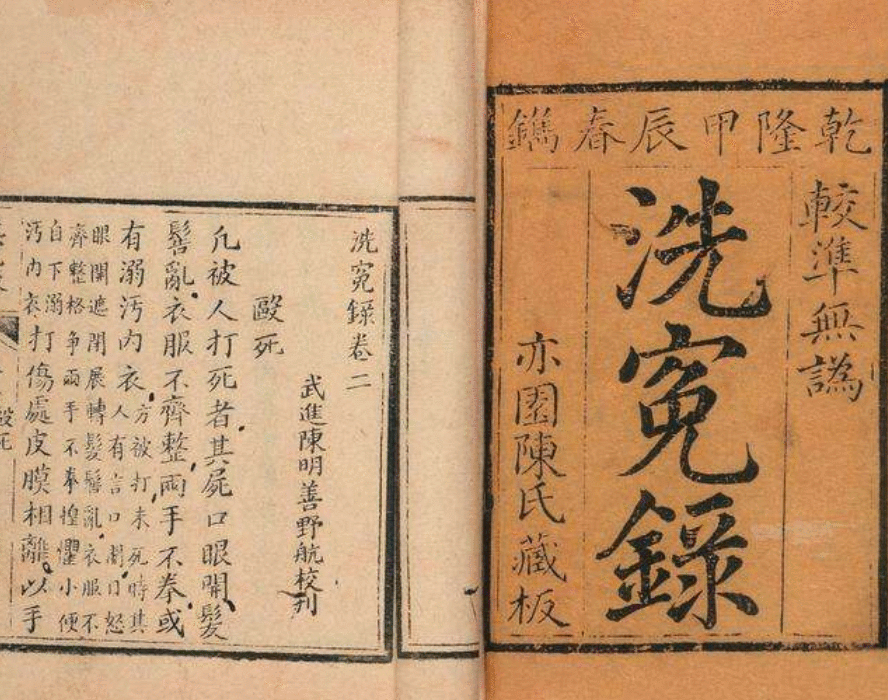 乾隆甲辰春鐫
較準無譌
洗冤錄
亦園陳氏藏板
洗冤錄卷二
武進陳明善野航校刊
毆死
凡被人打死者其屍口眼開髪
髻亂衣服不齊整兩手不拳或
有溺汚内衣
方被打未死時其
人有言口開目怒
眼開遮閉展轉髪髻亂衣服不
齊整格爭兩手不拳惶懼小便
自下溺
汚内衣
打傷處皮膜相離以手
毆死